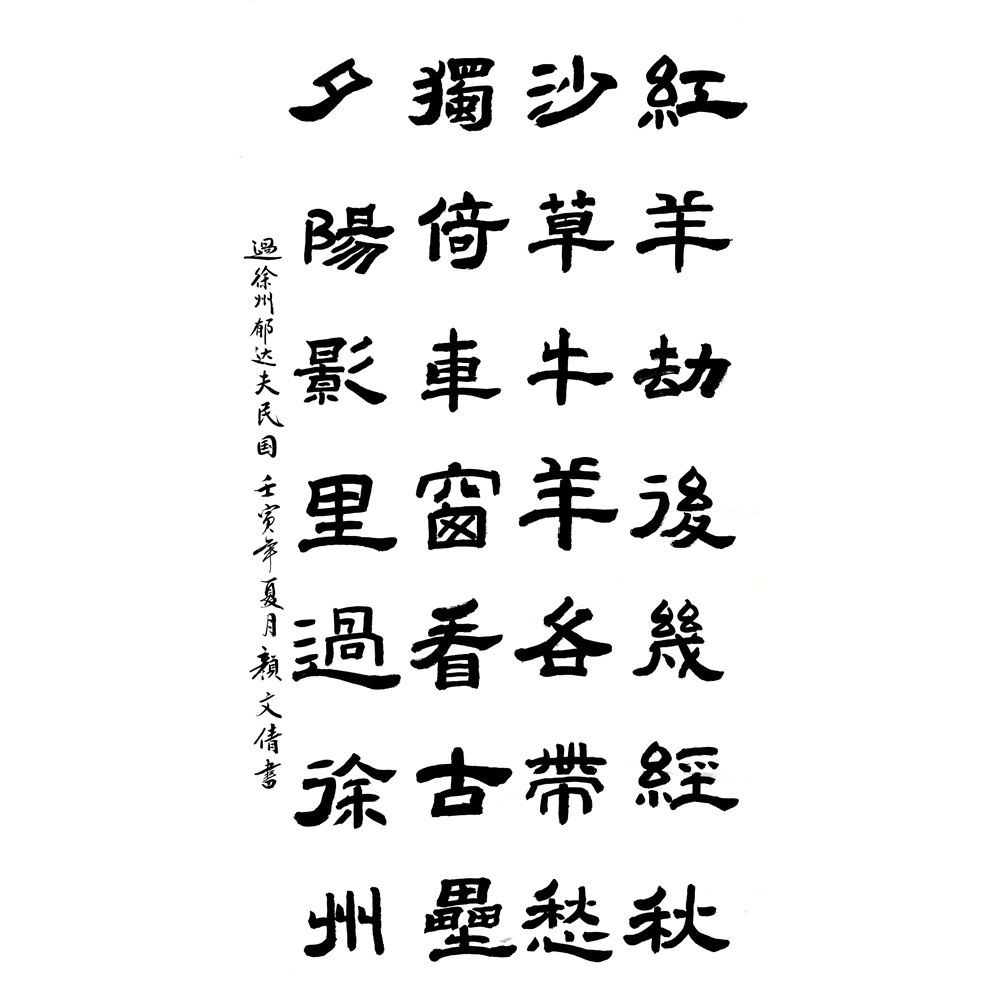 紅羊劫後幾經秋
沙草牛羊各帶愁
獨倚車窗看古壘
夕陽影里過徐州
過徐州郁达夫民国 壬寅年夏月顏文倩書